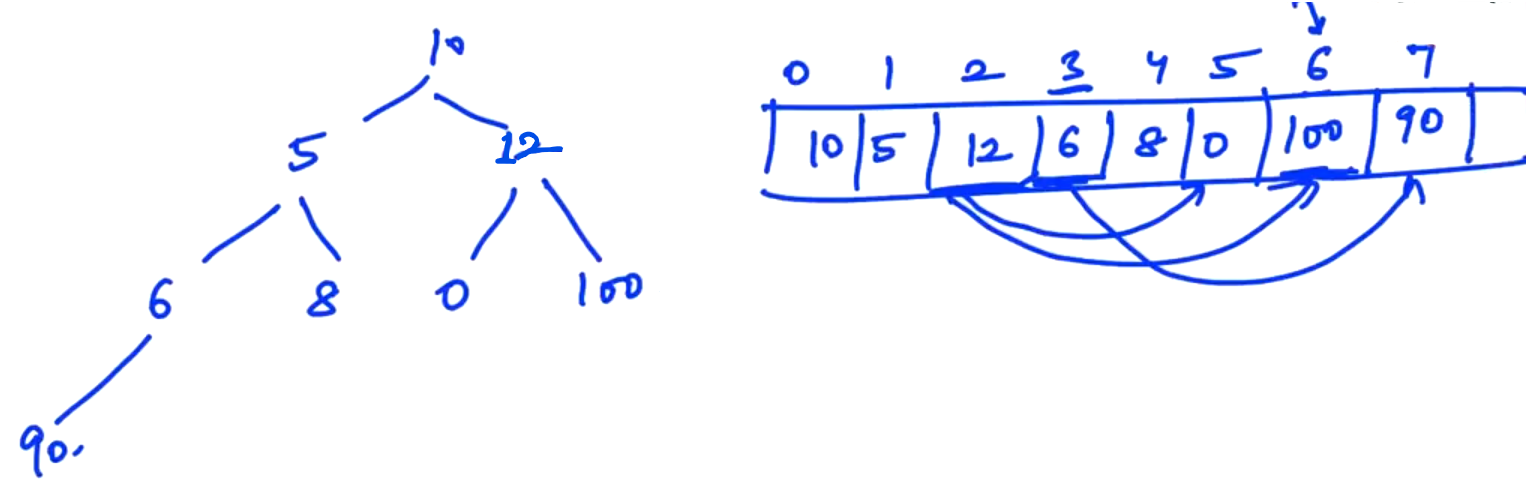 10
5 12
6 8 0 100
90.
0 1 2 3 4 5 6 7
10 5 12 6 8 0 100 90